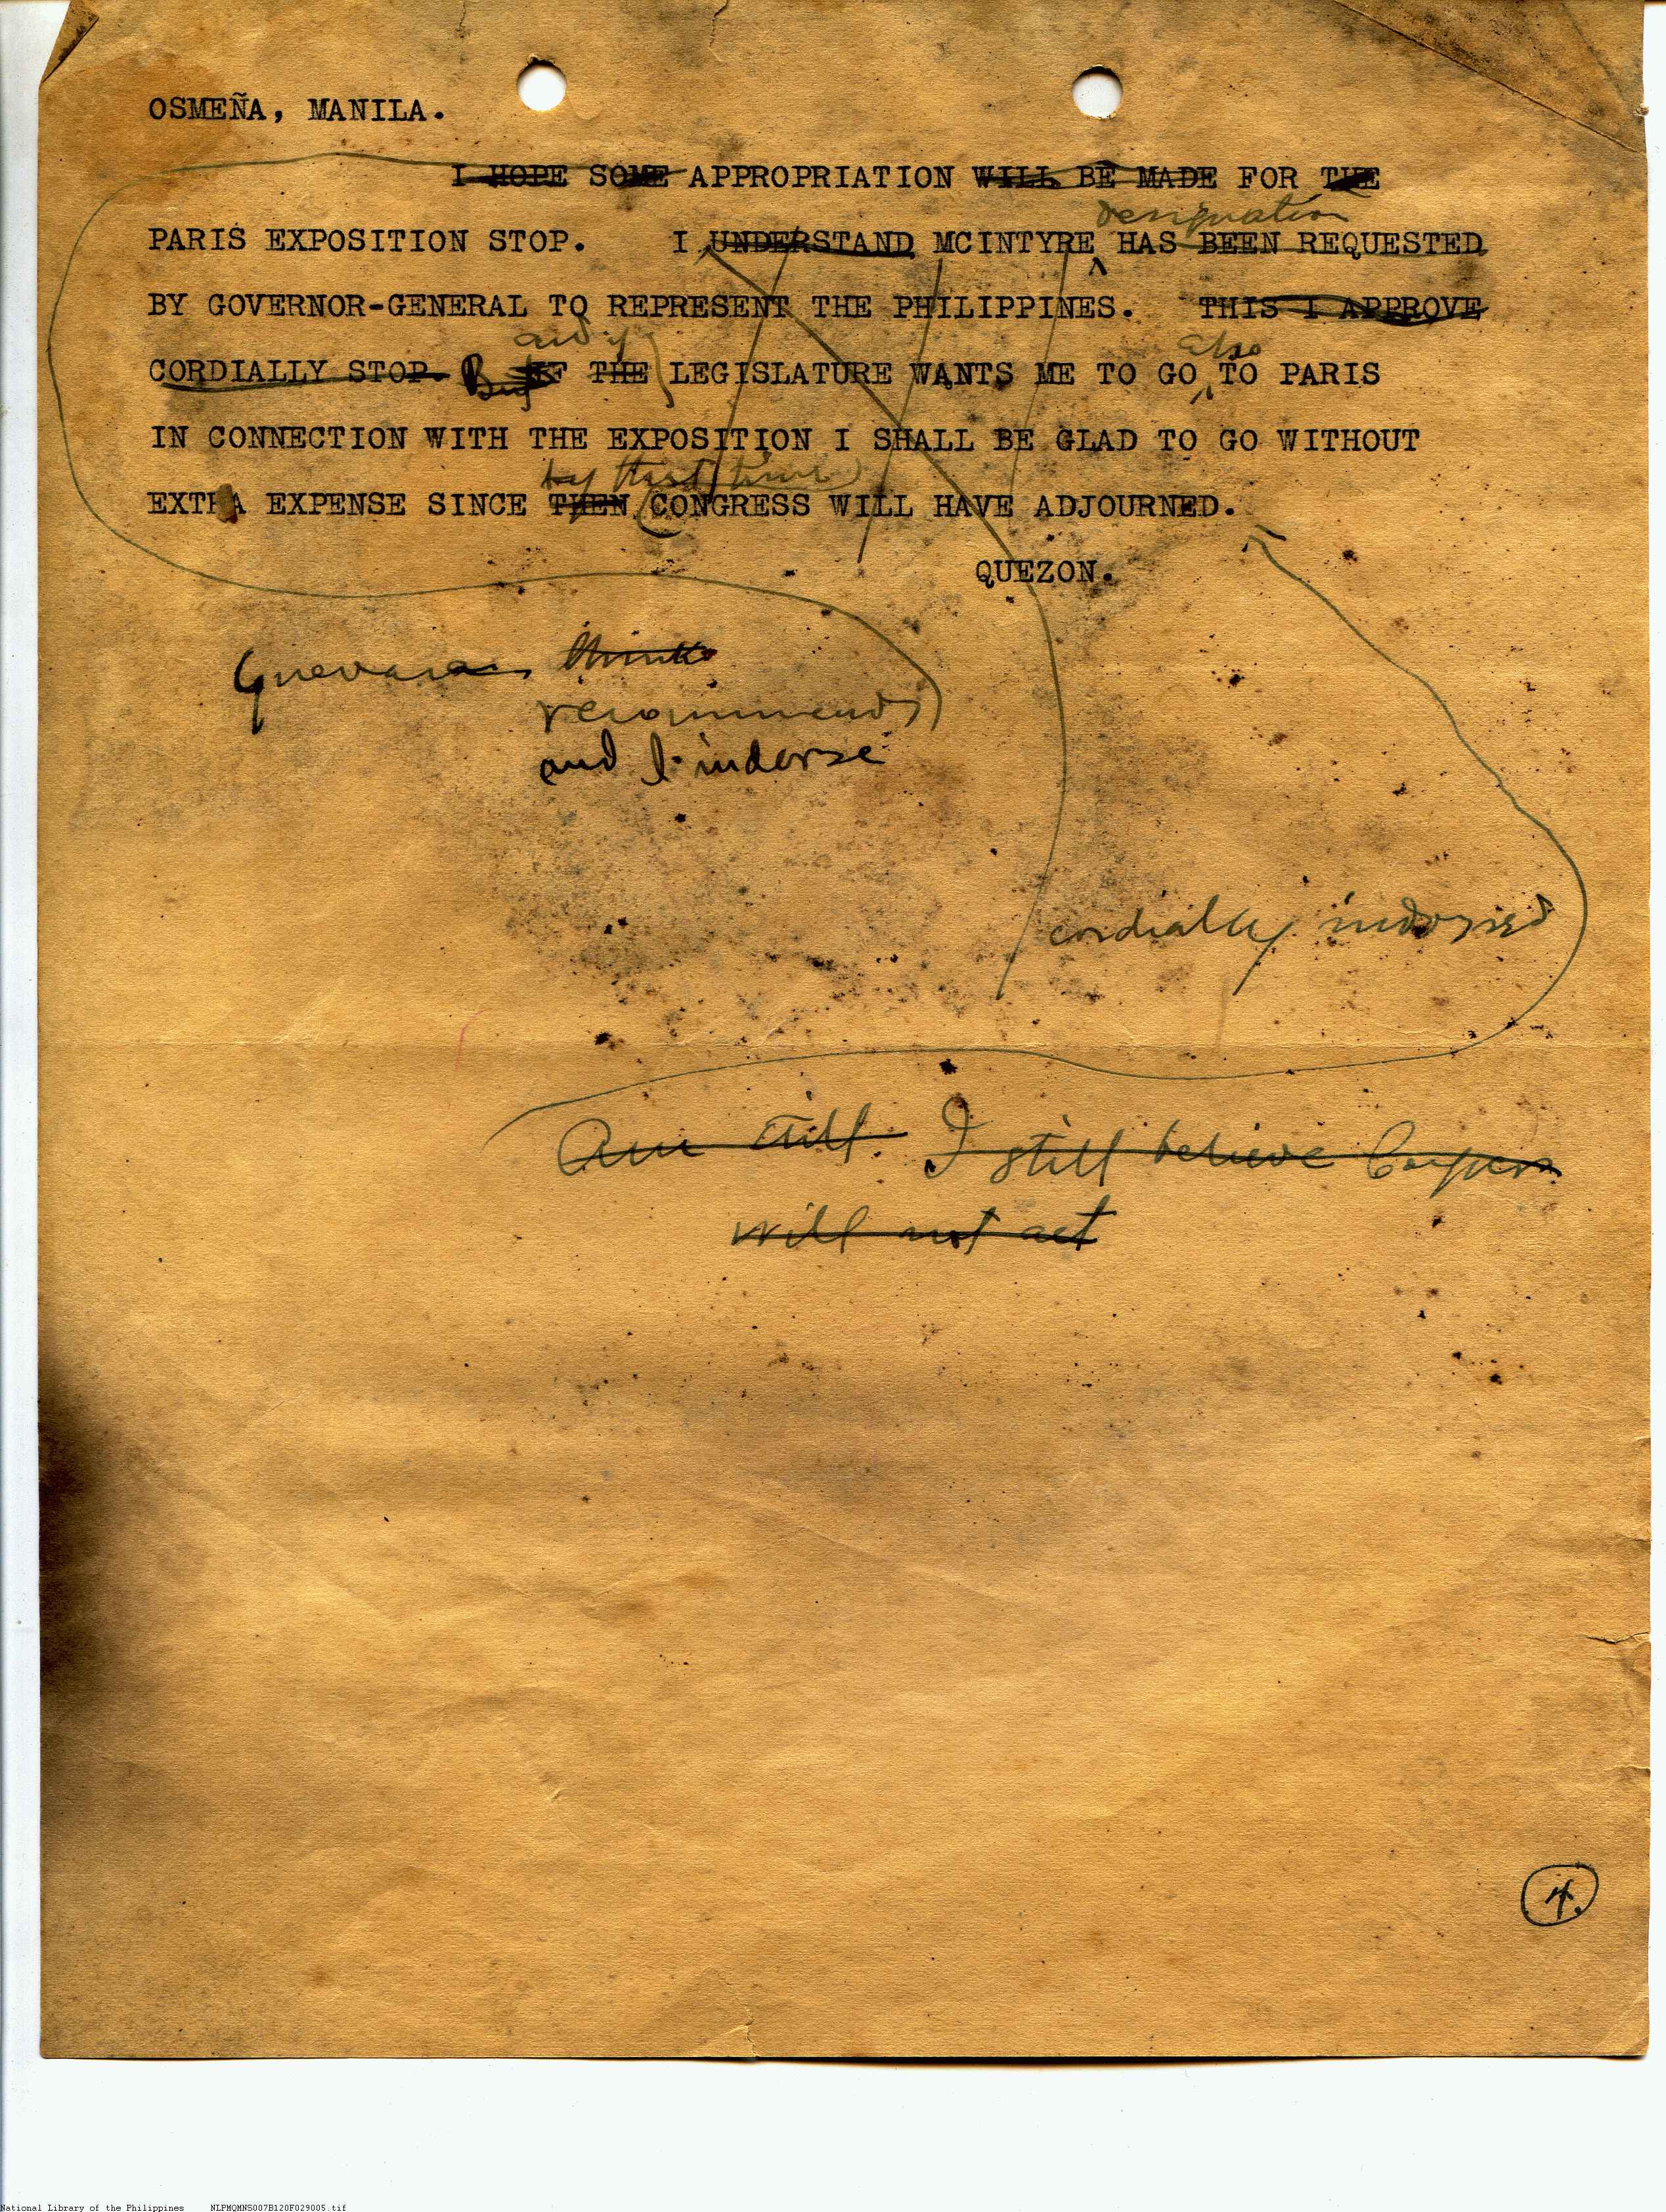 OSMEÑA, MANILA.
I HOPE SOME APPROPRIATION WILL BE MADE FOR THE
designation
PARIS EXPOSITION STOP. I UNDERSTAND MCINTYRE HAS BEEN REQUESTED
BY GOVERNOR-GENERAL TO REPRESENT THE PHILIPPINES. THIS I APPROVE
and if also
CORDIALLY STOP. But IF THE LEGISLATURE WANTS ME TO GO TO PARIS
IN CONNECTION WITH THE EXPOSITION I SHALL BE GLAD TO GO WITHOUT
by that time
EXTRA EXPENSE SINCE THEN CONGRESS WILL HAVE ADJOURNED.
QUEZON.
Guevara thinks
recommends
and I indorse
cordially indorsed
Am still. I still believe Congress
will not act
4.
National Library of the Philippines NLPMQMNS007B120F029005.tif